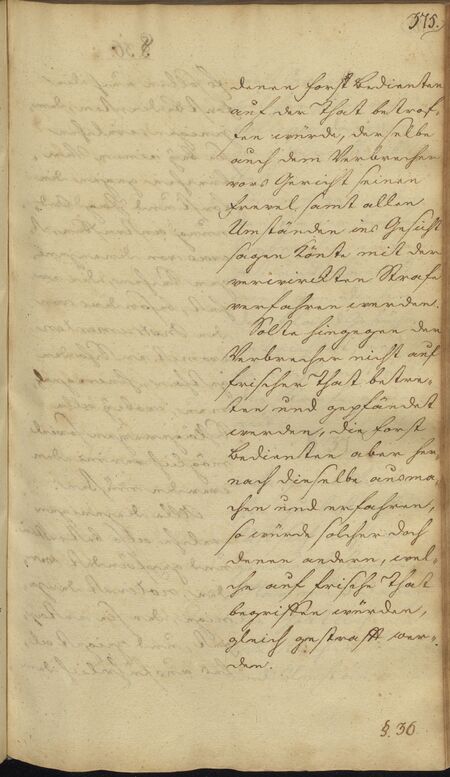 575.
denen forst bedienten
auf der That betrof-
fen würde, derselbe
auch dem Verbrecher
vors Gericht seinen
frevel samt allen
Umständen ins Gesicht
sagen könte mit der
verwirckten Strafe
verfahren werden.
Solte hingegen der
Verbrecher nicht auf
frischer That betre-
ten und gepfändet
werden, die forst
bedienten aber her-
nach dieselbe ausma-
chen und erfahren,
so würde solcher doch
denen andern, wel-
che auf frische That
begriffen würden,
gleich gestrafft wer-
den.
§. 36